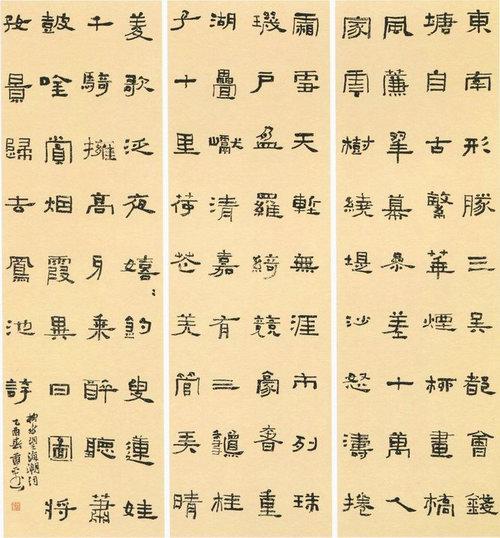 東南形勝三吳都會錢
塘自古繁華煙柳畫橋
風簾翠幕參差十萬人
家雲樹繞堤沙怒濤捲
霜雪天塹無涯市列珠
璣戶盈羅綺競豪奢重
湖疊巘清嘉有三龝桂
子十里荷花羌管弄晴
菱歌泛夜嬉〻釣叟蓮娃
千騎擁高牙乘醉聽蕭
鼓吟賞烟霞異日圖將
好景歸去鳳池誇
柳永望海潮詞
乙酉春